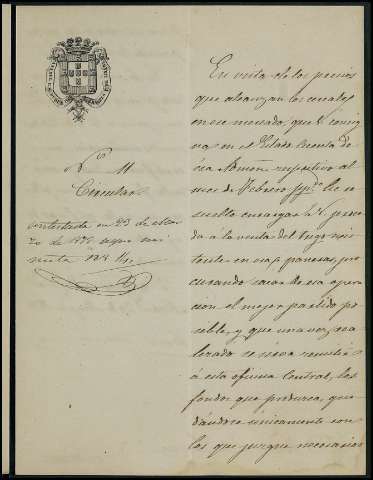 Nº 11
Circular
contestada en 23 de Mar
zo de 187 segun mi
nuta nº
En vista de los precios
que alcanzan los cereales
en ese mercado, que V. consig
na en el Estado Cuenta de
esa Admon respectivo al
mes de Febrero ppdo. he re
suelto encargar á V. proce
da á la venta del trigo exis
tente en esas paneras, pro
curando sacar de esa opera
cion el mejor partido po
sible, y que una vez rea
lizado se sirva remitir
á esta oficina Central, los
fondos que produzca, que
dándose únicamente con
los que juzgue necesarios